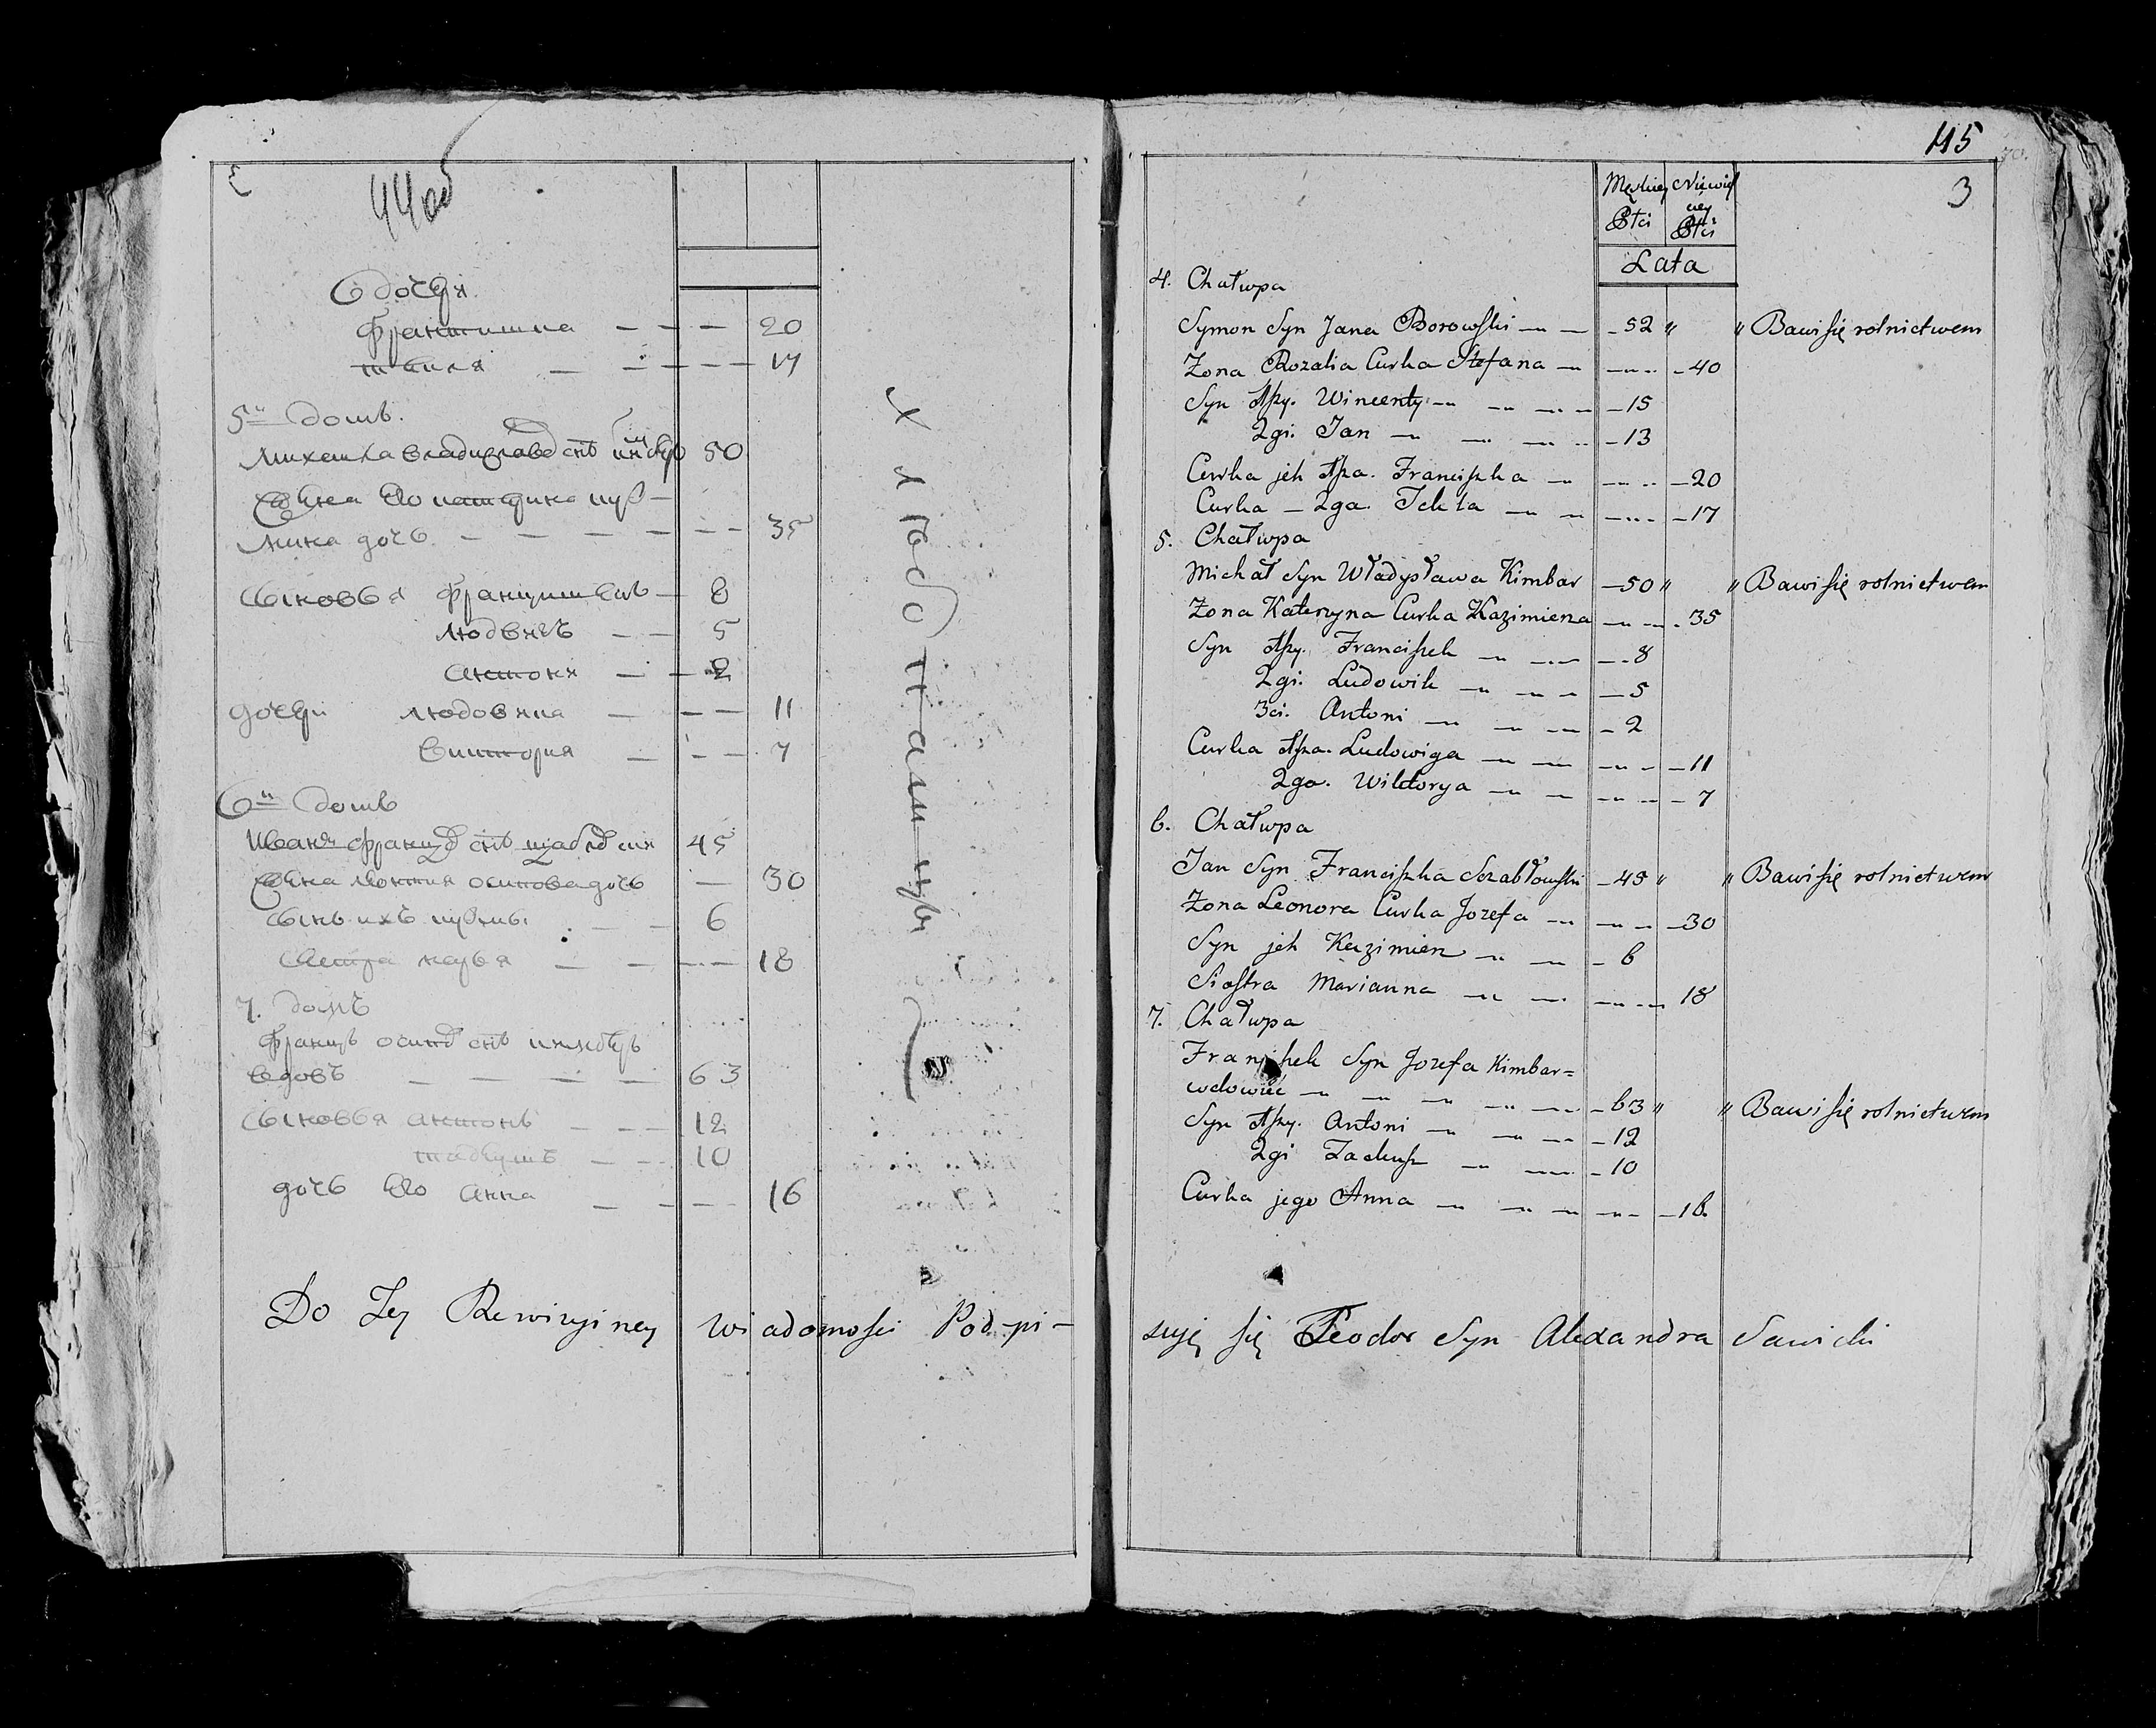 44 об
6 дочери
Францишка — — — 20
текля — — — 17
5й домъ.
Михешка владиславов снъ кимбар 50
жена Его катерина куз—
мина дочь — — — 35
сыновья францишекъ — 8
людвикъ — — 5
антони — — 2
дочери людовика — — — 11
виктория — — — 7
6й домъ
Иванъ францов снъ шаблов ски 45
жена осипова дочь — 30
сынъ ихъ — — 6
сестра марья — — — 18
7. домъ
францъ осипов снъ кимбаръ
вдовъ — — — — 63
сыновья антонъ — — 12
тадеушъ — — 10
дочь Его анна — — — 16
хлебопашцы
Do Tey Rewizyiney wiadomości Pod-pi-
115
3
Męskiey Płci
Niewieściey Płci
Lata
4. Chałupa
Symon Syn Jana Borowski — — 52 " " Bawi się rolnictwem
Żona Rozalia Curka Stefana — — 40
Syn 1szy. Wincenty — — 15
2gi. Jan — — 13
Curka jch 1sza. Franciszka — — 20
Curka — 2ga. Tekla — — 17
5. Chałupa
Michał Syn Władysława Kimbar — 50 " " Bawi się rolnictwem
Żona Kateryna Curka Kazimierza — — 35
Syn 1szy. Franciszek — — 8
2gi. Ludowik — — 5
3ci. Antoni — — 2
Curka 1sza. Ludowiga — — 11
2ga. Wiktorya — — 7
6. Chałupa
Jan Syn Franciszka Szabłowski — 45 " " Bawi się rolnictwem
Żona Leonora Curka Jozefa — — 30
Syn jch Kazimierz — — 6
Siostra Marianna — — 18
7. Chałupa
Franciszek Syn Jozefa Kimbar=
wdowiec — — 63 " " Bawi się rolnictwem
Syn 1szy. Antoni — — 12
2gi Tadeusz — — 10
Curka jego Anna — — 16.
suję się Teodor Syn Alexandra Sawicki